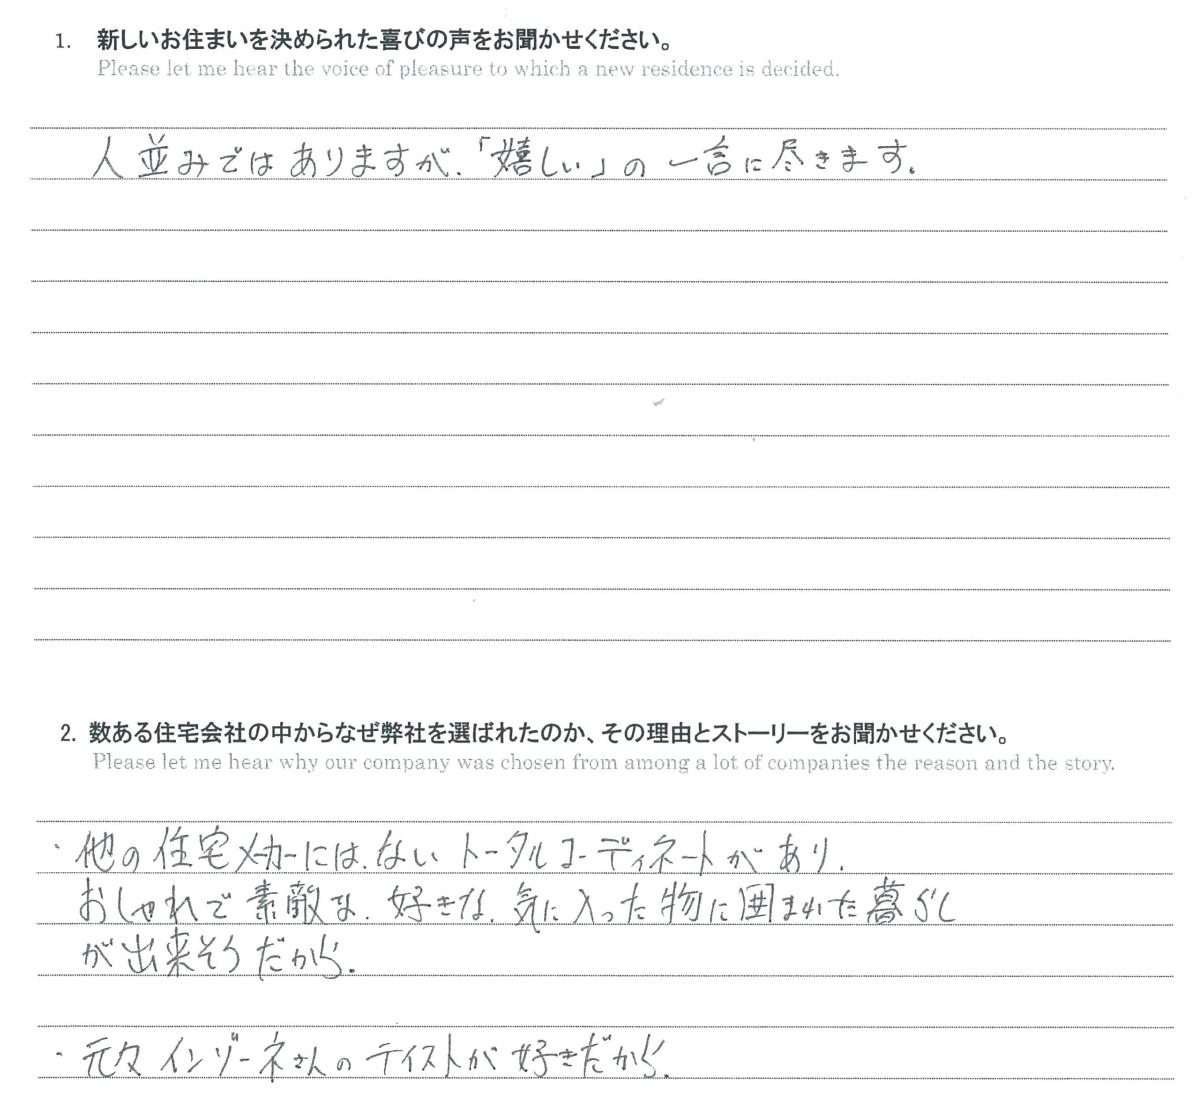 1. 新しいお住まいを決められた喜びの声をお聞かせください。
Please let me hear the voice of pleasure to which a new residence is decided.
人並みではありますが、「嬉しい」の一言に尽きます。
2. 数ある住宅会社の中からなぜ弊社を選ばれたのか、その理由とストーリーをお聞かせください。
Please let me hear why our company was chosen from among a lot of companies the reason and the story.
・他の住宅メーカーには、ないトータルコーディネートがあり、
おしゃれで素敵な、好きな、気に入った物に囲まれた暮らし
が出来そうだから。
・元々インゾーネさんのテイストが好きだから。